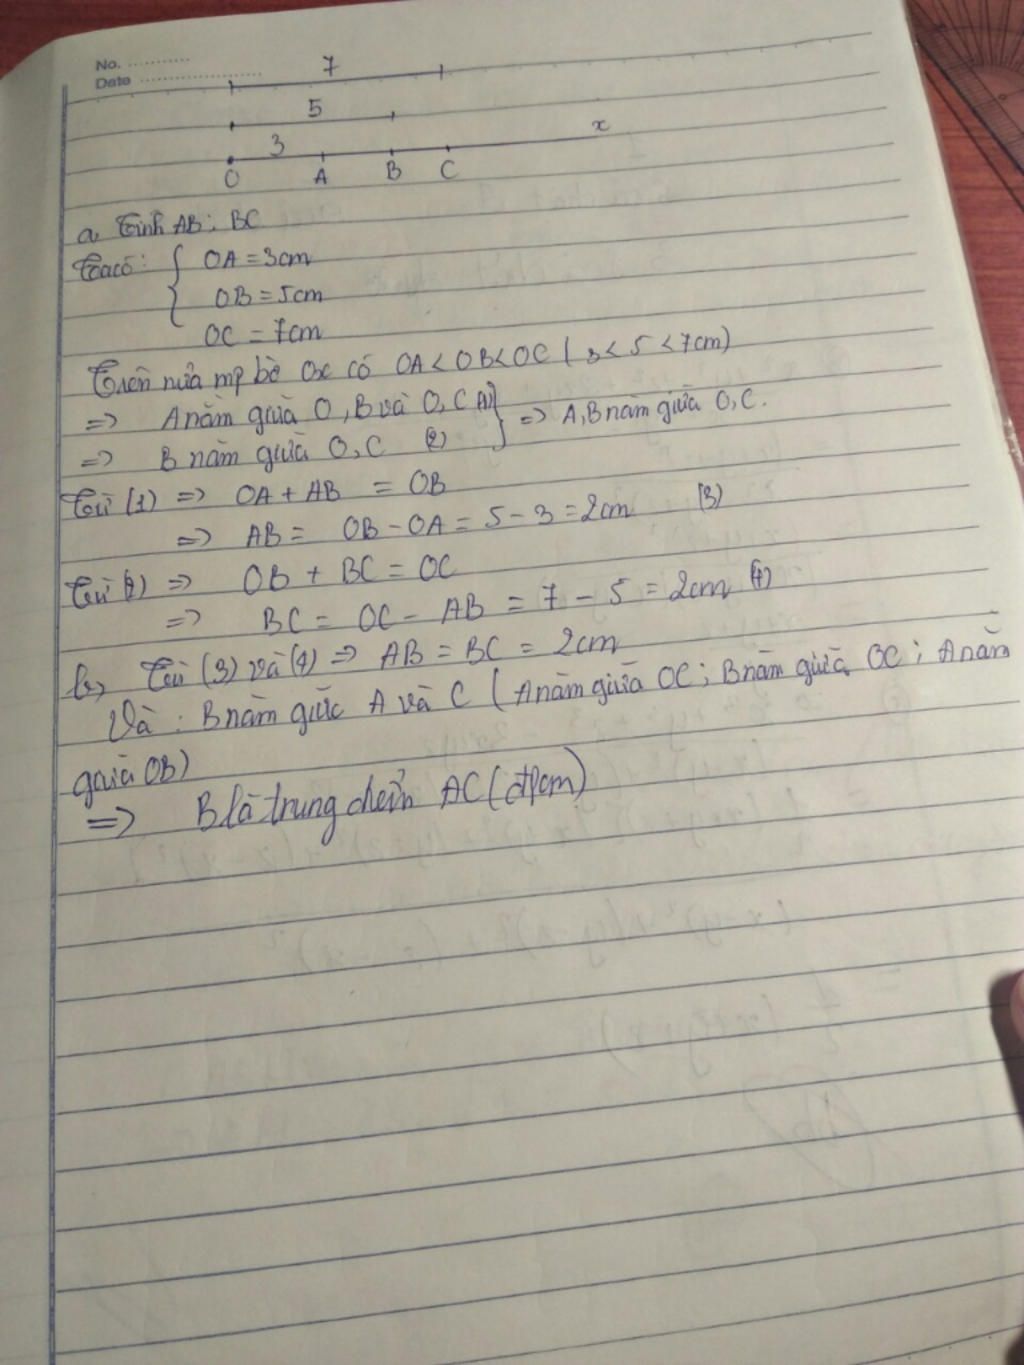 No. ...........
Date ......................
7
5
3
x
O A B C
a, Tính AB; BC
Ta có: { OA = 3cm
OB = 5cm
OC = 7cm
Trên nửa mp bờ Ox có OA < OB < OC ( 3 < 5 < 7cm)
=> A nằm giữa O, B và O, C (1) } => A, B nằm giữa O, C.
=> B nằm giữa O, C (2)
Từ (1) => OA + AB = OB
=> AB = OB - OA = 5 - 3 = 2cm (3)
Từ (2) => OB + BC = OC
=> BC = OC - AB = 7 - 5 = 2cm (4)
b, Từ (3) và (4) => AB = BC = 2cm
Và : B nằm giữa A và C ( A nằm giữa OC ; B nằm giữa OC ; A nằm
giữa OB)
=> B là trung điểm AC (đpcm)